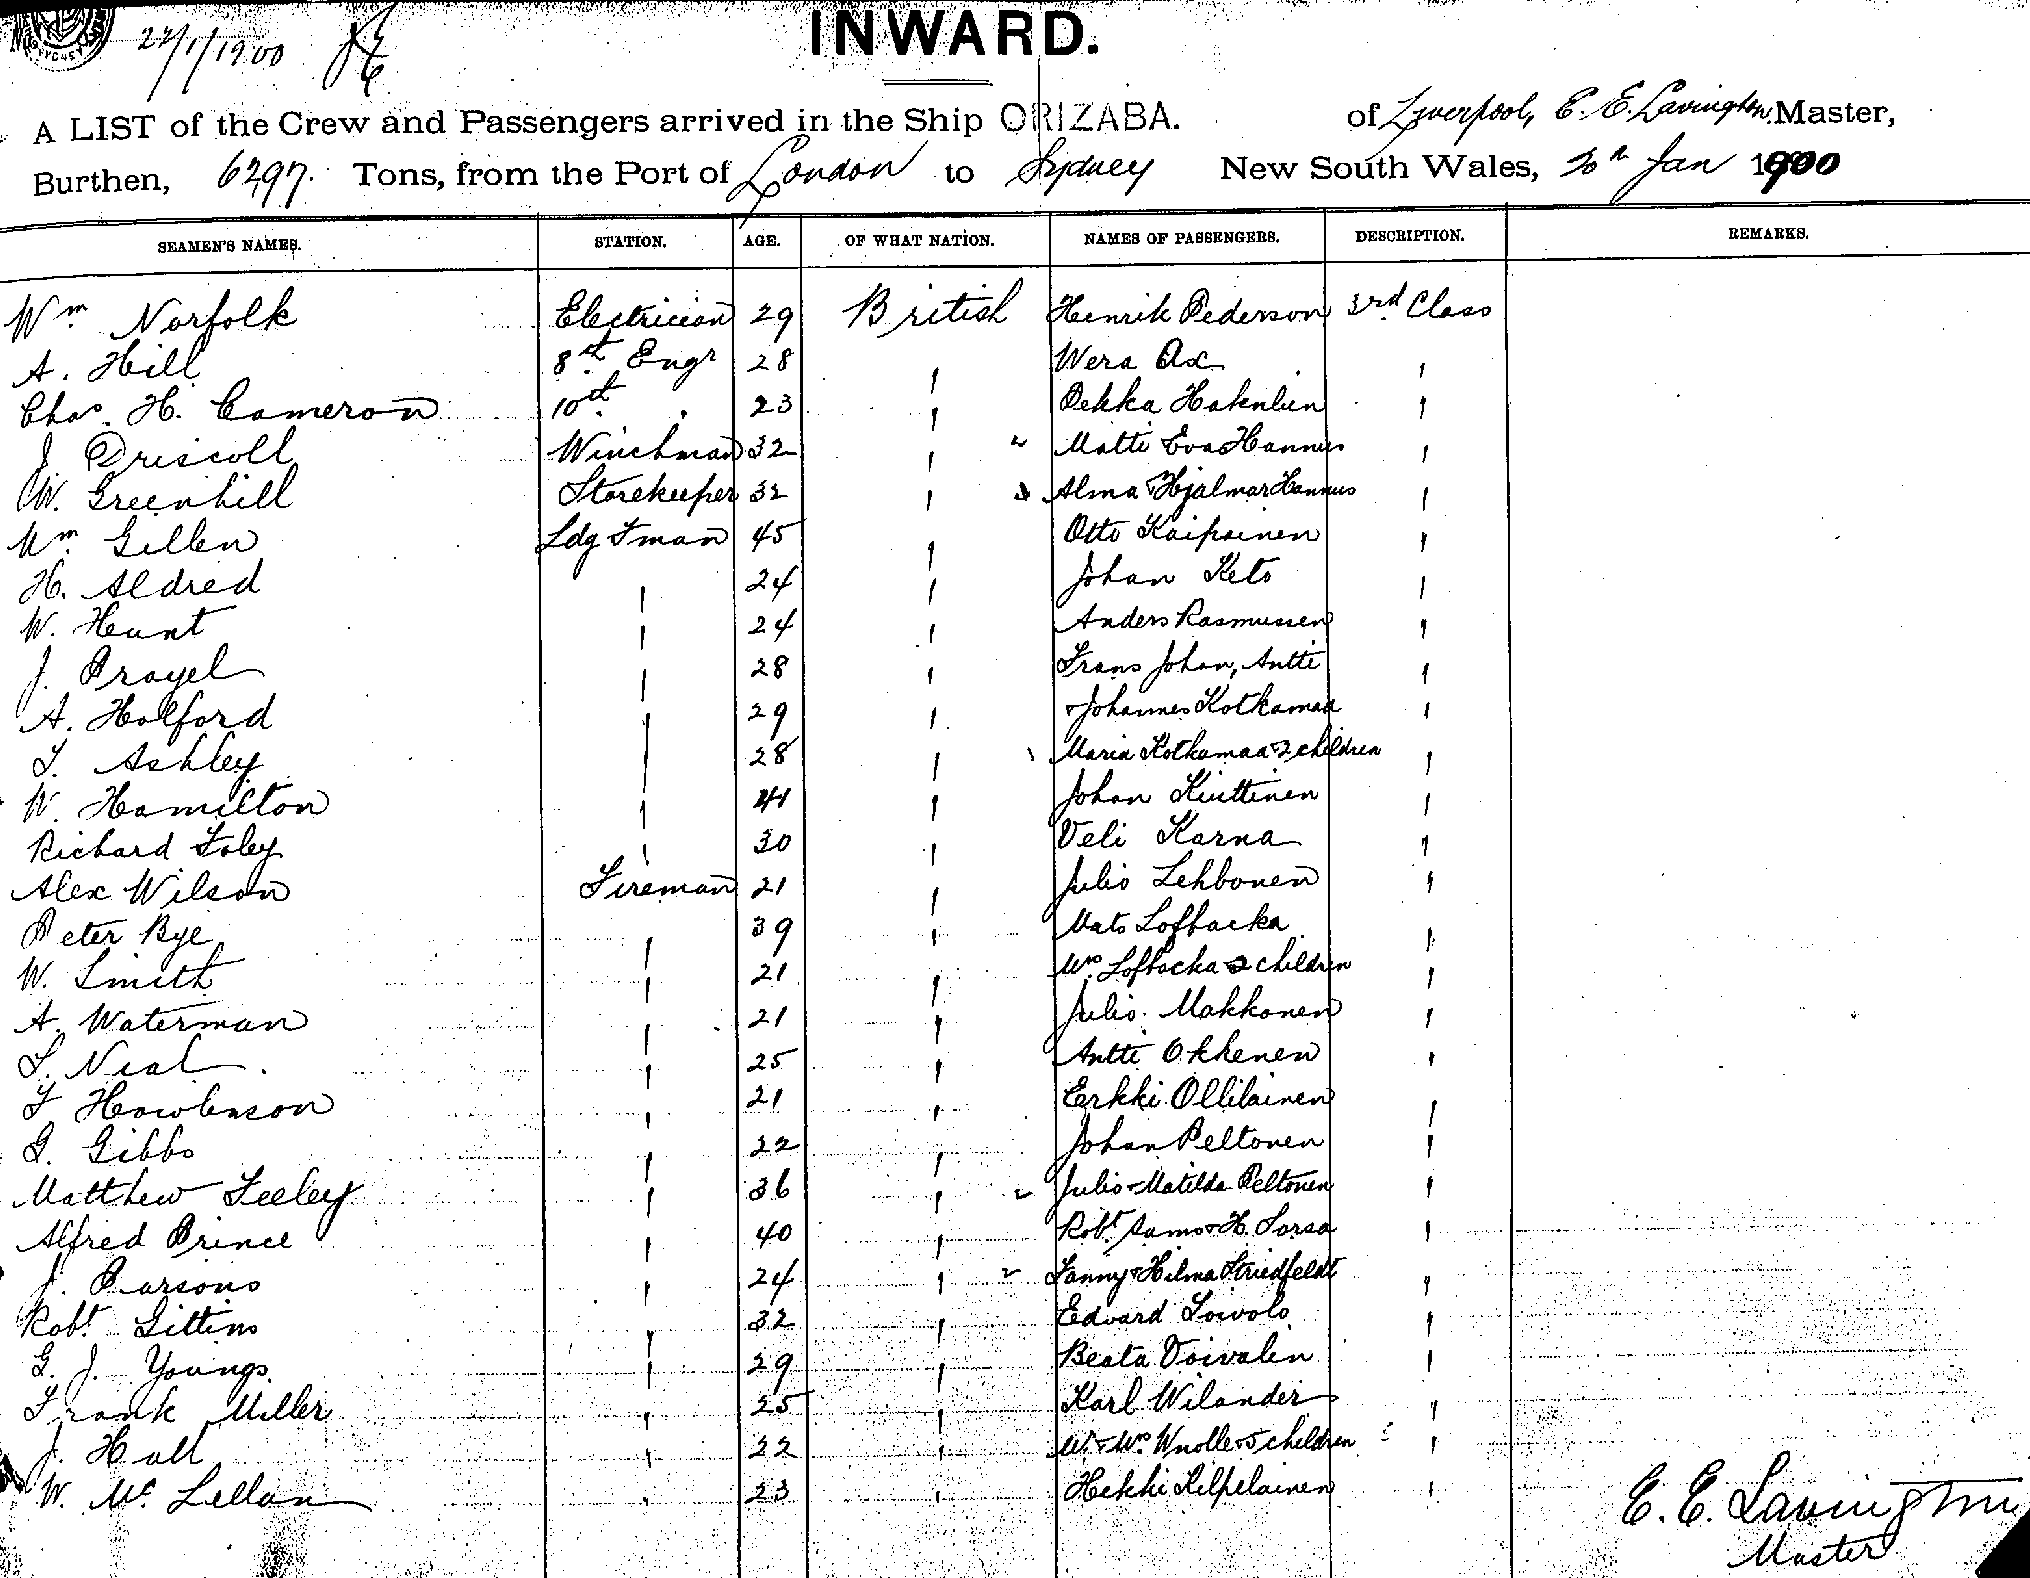 22/1/1900
INWARD.
A LIST of the Crew and Passengers arrived in the Ship ORIZABA. of Liverpool, C. E. Lavington Master,
Burthen, 6297. Tons, from the Port of London to Sydney New South Wales, 20th Jan 1900
SEAMEN'S NAMES. STATION. AGE. OF WHAT NATION. NAMES OF PASSENGERS. DESCRIPTION. REMARKS.
Wm Norfolk Electrician 29 British Henrik Pederson 3rd Class
A. Hill 8th Engr 28 " Wera Ax "
Chas. H. Cameron 10th " 23 " Pekka Hakulin "
J. Driscoll Winchman 32 " Matti & Eva Hannus "
W. Greenhill Storekeeper 32 " Alma & Hjalmar Hannus "
Wm Gillen Ldg Fman 45 " Otto Kaipainen "
H. Aldred " 24 " Johan Keto "
W. Hunt " 24 " Anders Rasmussen "
J. Prayel " 28 " Frans Johan, Antti "
A. Holford " 29 " & Johannes Kotkamaa "
T. Ashley " 28 " Maria Kotkamaa & 2 children "
W. Hamilton " 41 " Johan Kiuttinen "
Richard Foley " 30 " Veli Karna "
Alex Wilson Fireman 21 " Julio Lehbonen "
Peter Bye " 39 " Mats Lofbacka "
W. Smith " 21 " Mrs Lofbacka & 2 children "
A. Waterman " 21 " Julio Makkonen "
S. Neal " 25 " Antti Okhenen "
F Howlenson " 21 " Erkki Ollilainen "
G. Gibbs " 22 " Johan Peltonen "
Matthew Feeley " 36 " Julio & Matilda Peltonen "
Alfred Prince " 40 " Robt. Samo & H. Sorsa "
J. Parsons " 24 " Fanny & Hilma Striedfeldt "
Robt. Gittins " 32 " Edvard Soivolo "
G. J. Youngs " 29 " Beata Voivalen "
Frank Miller " 25 " Karl Wilander "
J. Hall " 22 " Mr & Mrs Wnoller & 5 children "
W. Mc Lellan " 23 " Hekki Kilpelainen "
C. E. Lavington
Master